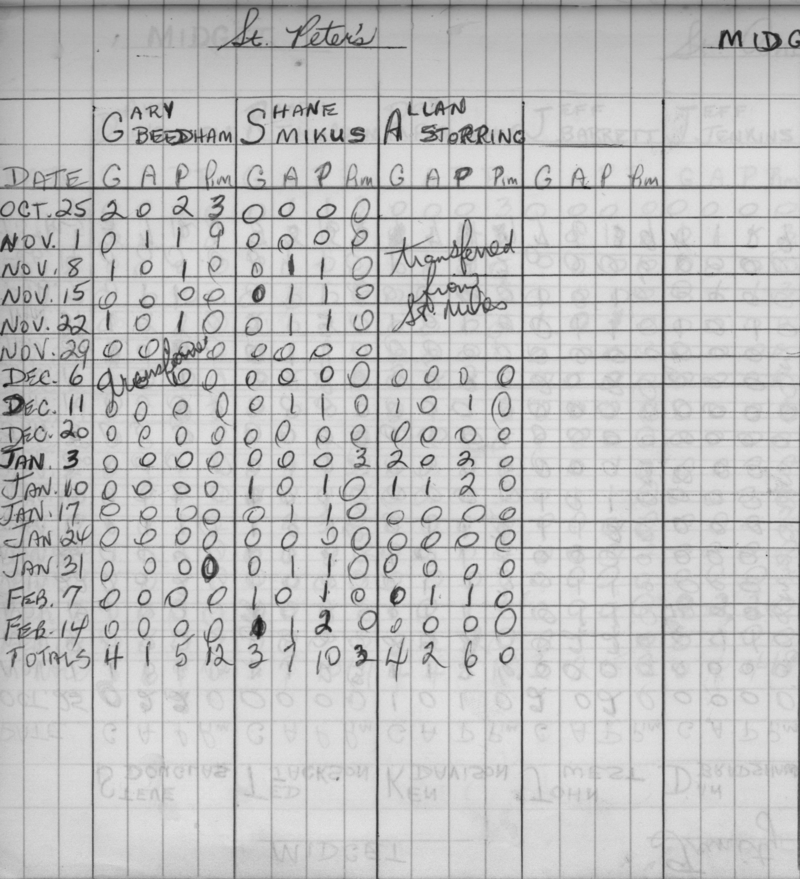 St. Peter's MIDG
GARY BEEDHAM SHANE MIKUS ALLAN STORRING
DATE G A P Pim G A P Pim G A P Pim G A P Pim
OCT. 25 2 0 2 3 0 0 0 0
NOV. 1 0 1 1 9 0 0 0 0 transferred
NOV. 8 1 0 1 0 0 1 1 0
NOV. 15 0 0 0 0 0 1 1 0 from
NOV. 22 1 0 1 0 0 1 1 0 St. Mikes
NOV. 29 0 0 0 0 0 0 0 0
DEC. 6 0 0 0 0 0 0 0 0 0 0
DEC. 11 0 0 0 0 0 1 1 0 1 0 1 0
DEC. 20 0 0 0 0 0 0 0 0 0 0 0 0
JAN. 3 0 0 0 0 0 0 0 3 2 0 2 0
JAN. 10 0 0 0 0 1 0 1 0 1 1 2 0
JAN. 17 0 0 0 0 0 1 1 0 0 0 0 0
JAN 24 0 0 0 0 0 0 0 0 0 0 0 0
JAN. 31 0 0 0 0 0 1 1 0 0 0 0 0
FEB. 7 0 0 0 0 1 0 1 0 0 1 1 0
FEB. 14 0 0 0 0 1 1 2 0 0 0 0 0
TOTALS 4 1 5 12 3 7 10 3 4 2 6 0